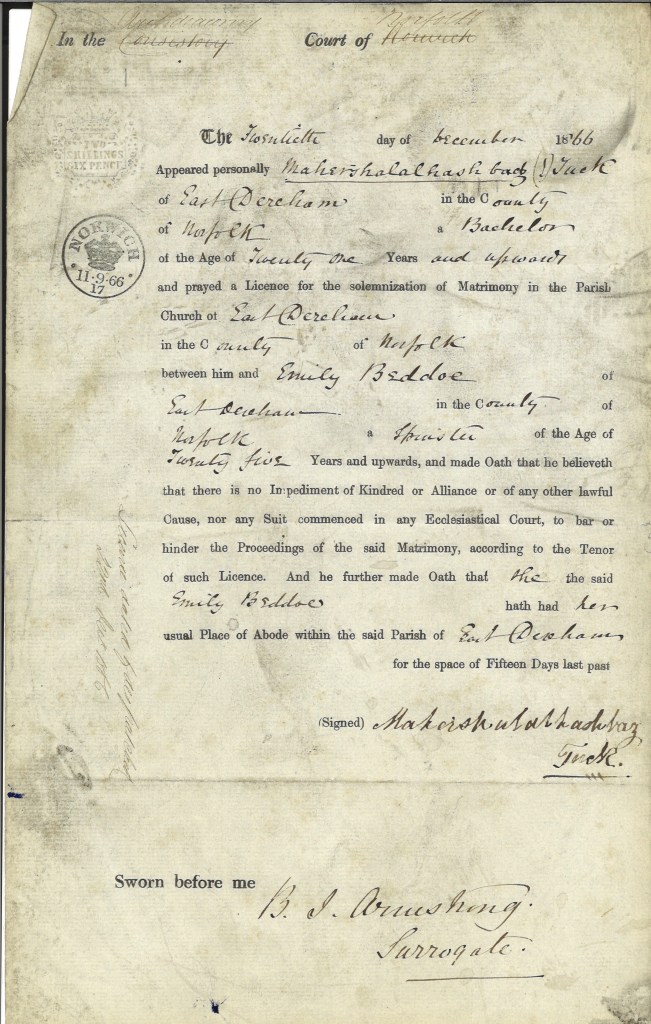 In the Consistory Court of Norwich
Archdeaconry Norfolk
TWO
SHILLINGS
SIX PENCE
The Twentieth day of December 1866
Appeared personally Mahershalalhashbaz (!) Tuck
of East Dereham in the County
of Norfolk a Bachelor
NORWICH
11-9-66
17
of the Age of Twenty One Years and upwards
and prayed a Licence for the solemnization of Matrimony in the Parish
Church of East Dereham
in the County of Norfolk
between him and Emily Beddoe of
East Dereham in the County of
Norfolk a Spinster of the Age of
Twenty five Years and upwards, and made Oath that he believeth
that there is no Impediment of Kindred or Alliance or of any other lawful
Cause, nor any Suit commenced in any Ecclesiastical Court, to bar or
hinder the Proceedings of the said Matrimony, according to the Tenor
of such Licence. And he further made Oath that she the said
Emily Beddoe hath had her
usual Place of Abode within the said Parish of East Dereham
for the space of Fifteen Days last past
(Signed) Mahershalalhashbaz
Tuck.
Sworn before me
B. J. Armstrong.
Surrogate.